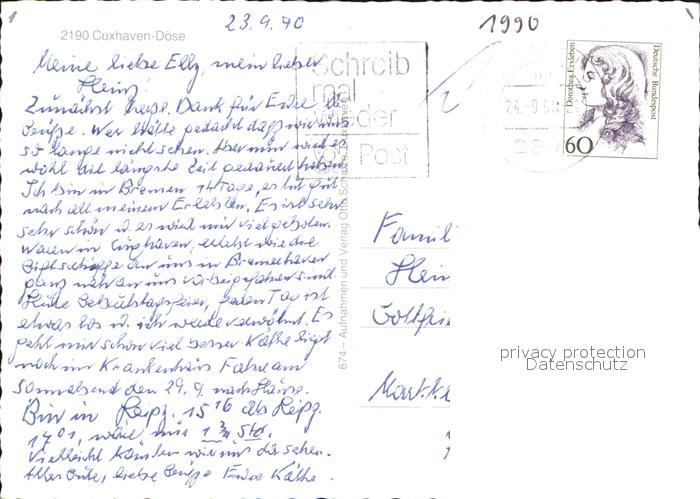 2190 Cuxhaven-Döse
23.9.90
1990
Meine liebe Elly, mein lieber
Heinz!
Zunächst herzl. Dank für Eure lb.
Grüße. Wer hätte gedacht daß wir uns
so lange nicht sehen. Aber nun wird es
wohl die längste Zeit gedauert haben.
Ich bin in Bremen 14 Tage, es tut gut
nach all meinem Erlebten. Es ist sehr
sehr schön u. es wird mir viel geboten.
Waren in Cuxhaven, erlebt wie die
schiffe an uns in Bremerhaven
ganz nah an uns vorbeigefahren sind.
Heute Geburtstagsfeier, jeden Tag ist
etwas los u. ich werde verwöhnt. Es
geht mir schon viel besser. Käthe liegt
noch im Krankenhaus. Fahre am
Sonnabend den 29.9. nach Hause.
Bin in Leipz. 15 16 ab Leipz.
17 01, wäre mir 1 3/4 Std.
Vielleicht könnten wir uns da sehen.
Alles Gute, liebe Grüße Eure Käthe.
674 – Aufnahmen und Verlag Otto Cuxhaven
Schreib
mal
wieder
Post
24.-9.90
Dorothea Erxleben
Deutsche Bundespost
60
Famili
Hein
Gottfrie
Markkl
privacy protection
Datenschutz